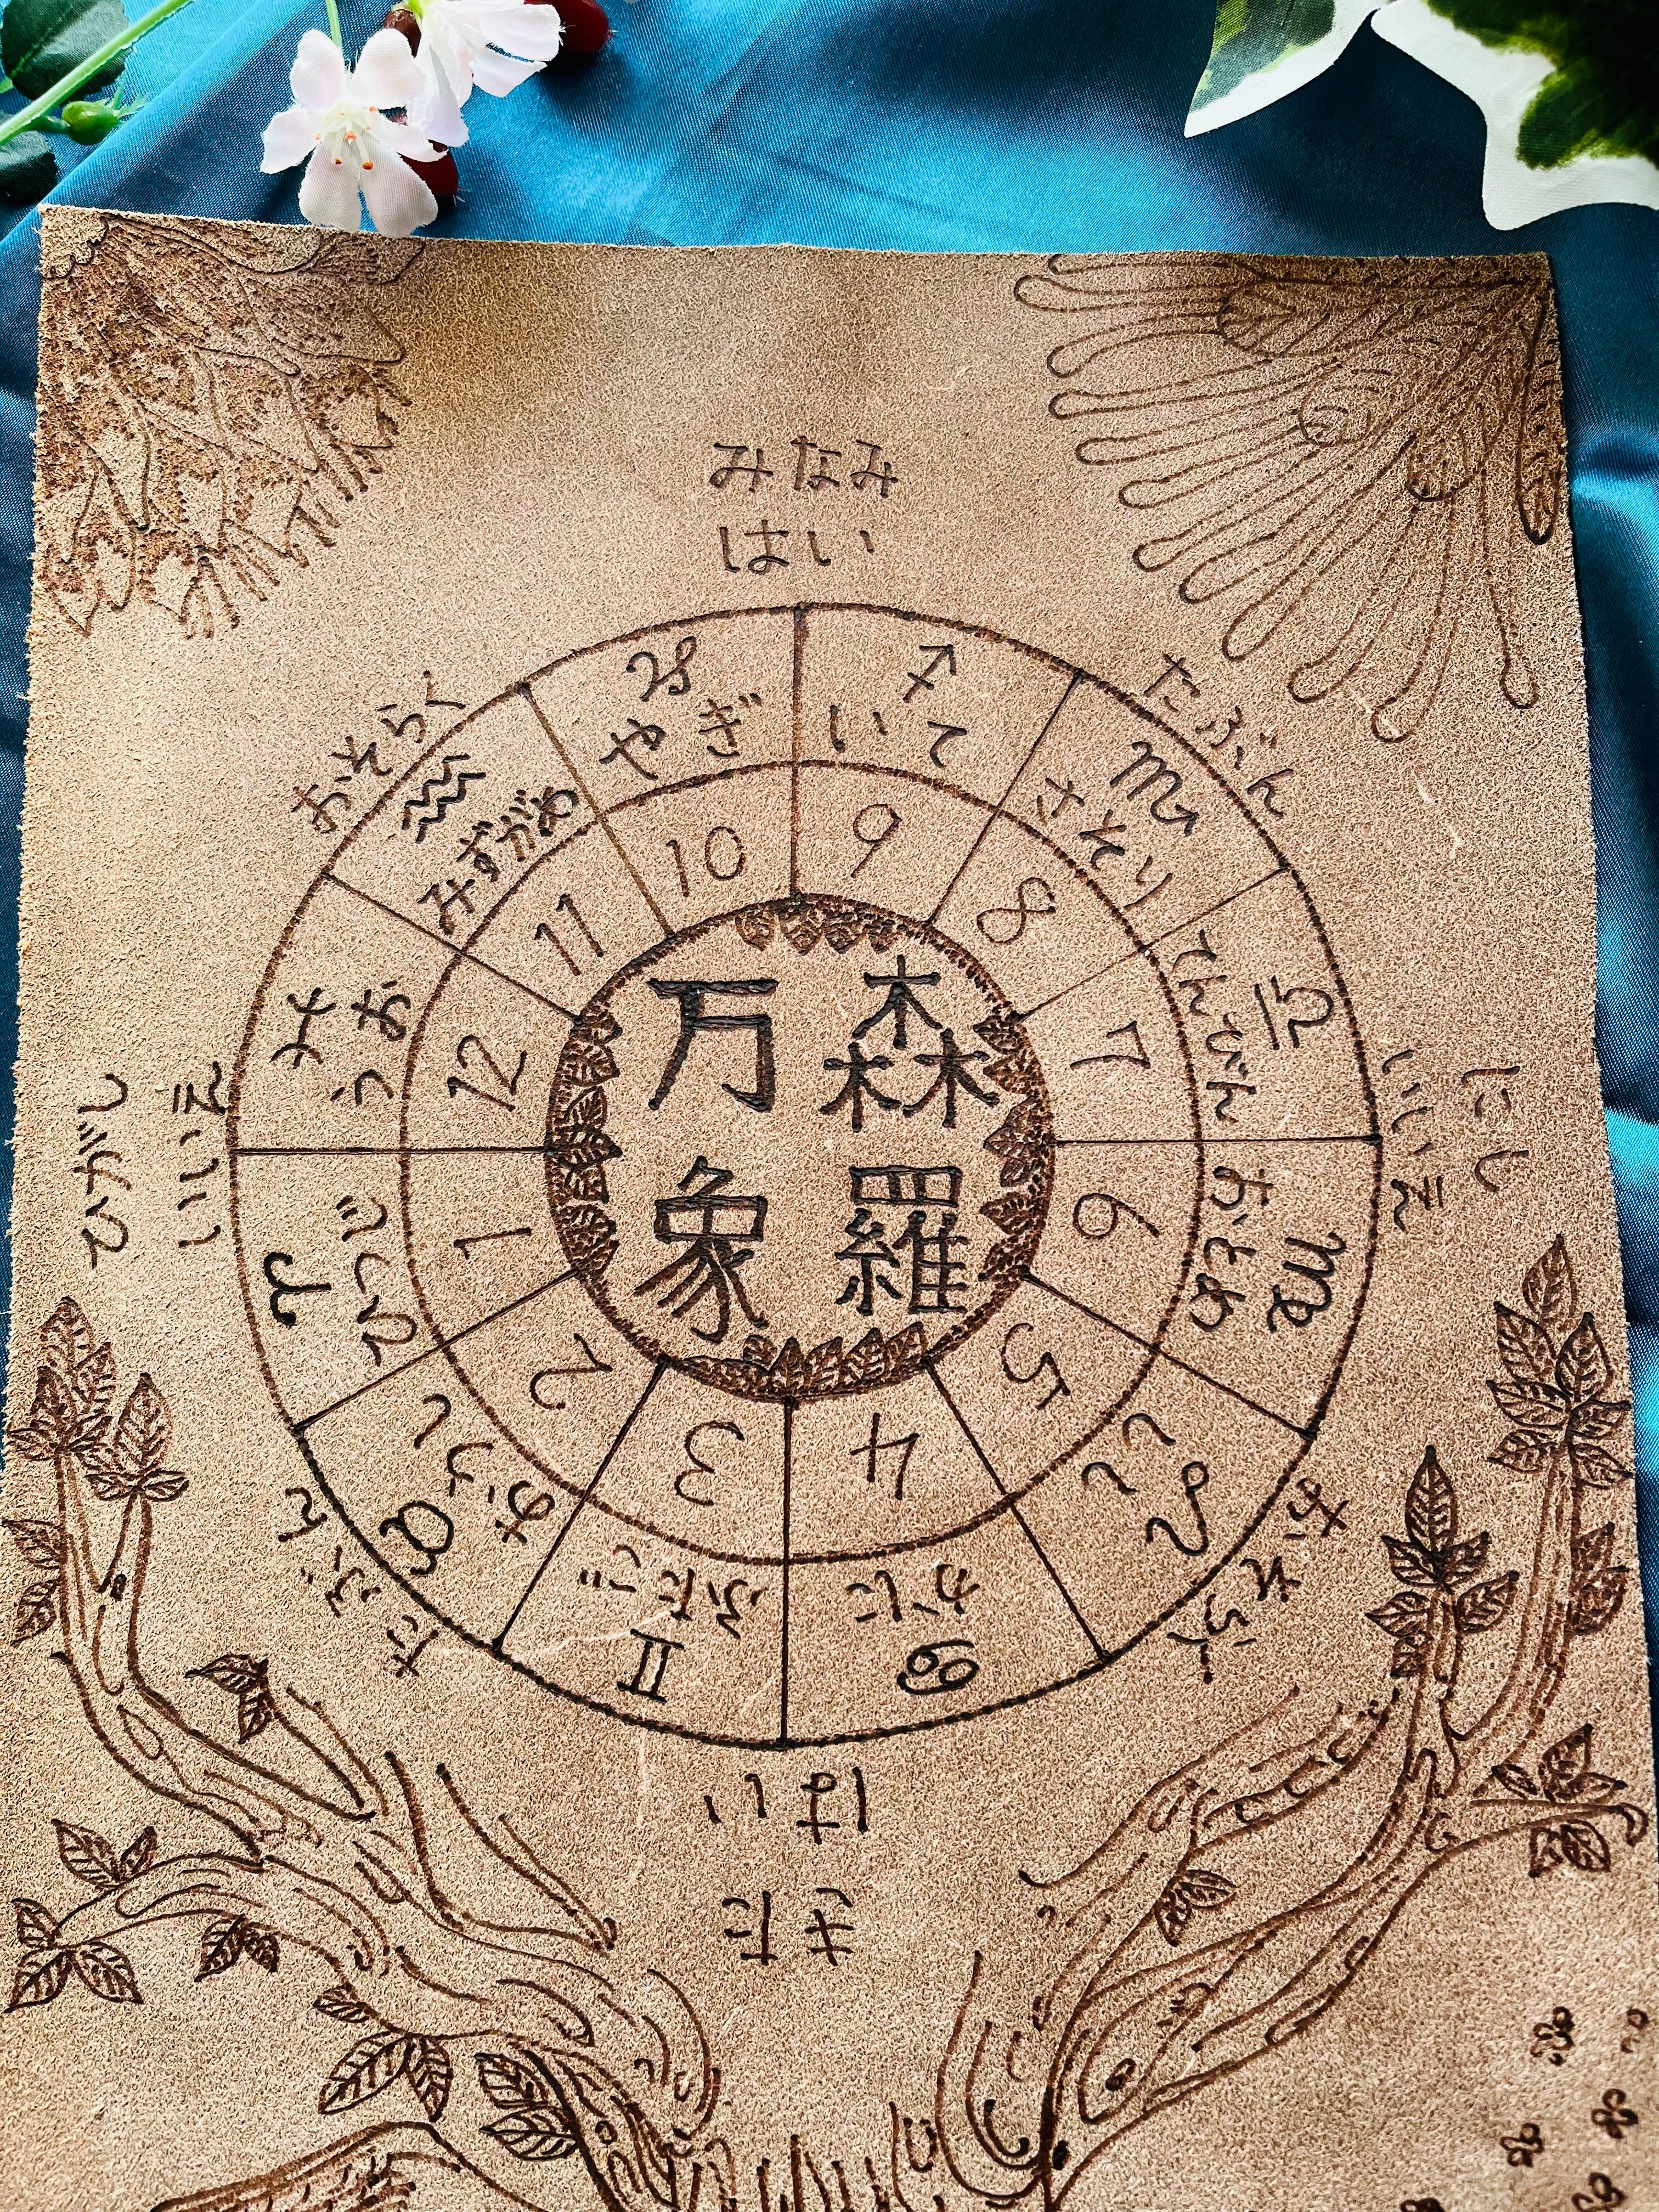 みなみ
はい
おそらく
たぶん
♑
やぎ
♐
いて
♒
みずがめ
♏
さそり
10
9
11
8
♓
うお
12
7
てんびん
♎
ひがし
いいえ
にし
いいえ
森羅
万象
♈
ひつじ
1
6
おとめ
♍
2
5
おうし
♉
しし
♌
3
4
ふたご
♊
かに
♋
たぶん
おそらく
はい
きた